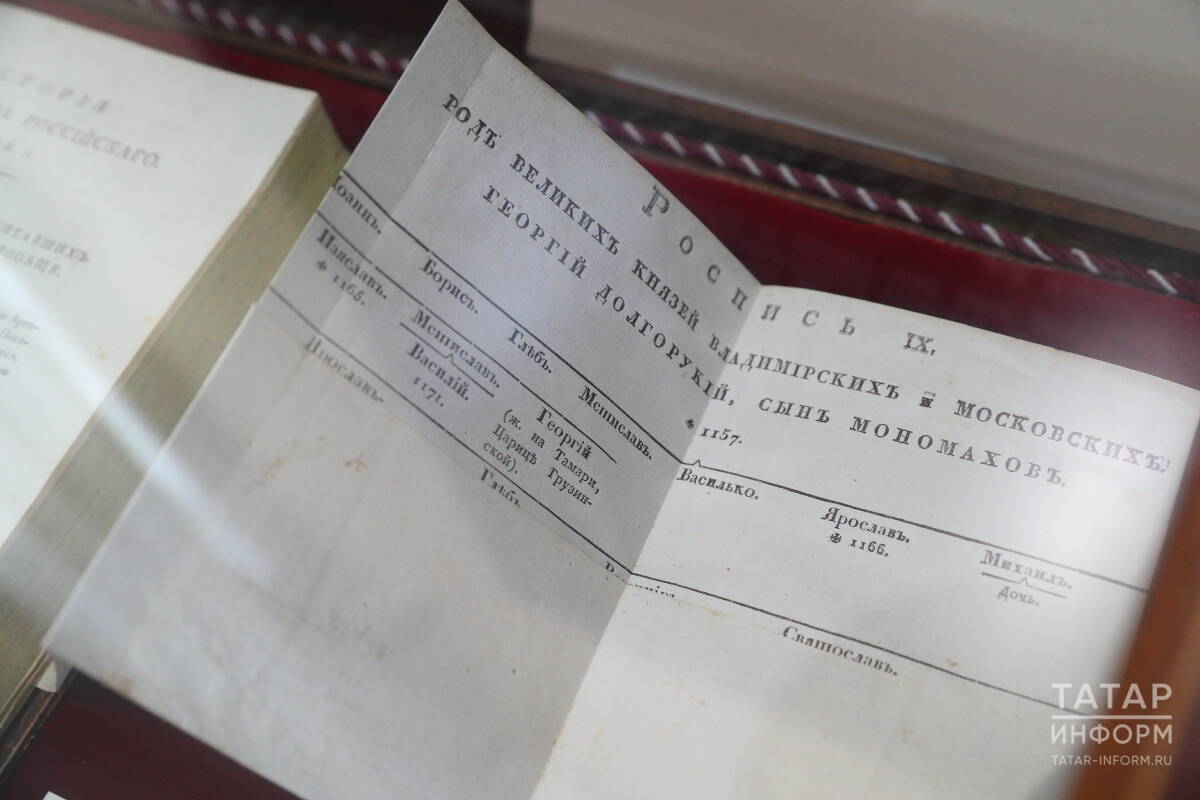 СТОРІЯ
РОССІЙСКАГО.
РОСПИСЬ IX.
РОДЪ ВЕЛИКИХЪ КНЯЗЕЙ ВЛАДИМІРСКИХЪ И МОСКОВСКИХЪ.
ГЕОРГІЙ ДОЛГОРУКІЙ, СЫНЪ МОНОМАХОВЪ.
✠ 1157.
Іоаннъ. Борисъ. Глѣбъ. Мстиславъ. Василько. Ярославъ. Михаилъ.
✠ 1166. Дочь.
Изяславъ. Мстиславъ. Георгій
✠ 1165. Василій. (ж. на Тамари,
1171. Царицѣ Грузин-
ской).
Ярославъ. Глѣбъ. Святославъ.
ТАТАР
ИНФОРМ
TATAR-INFORM.RU